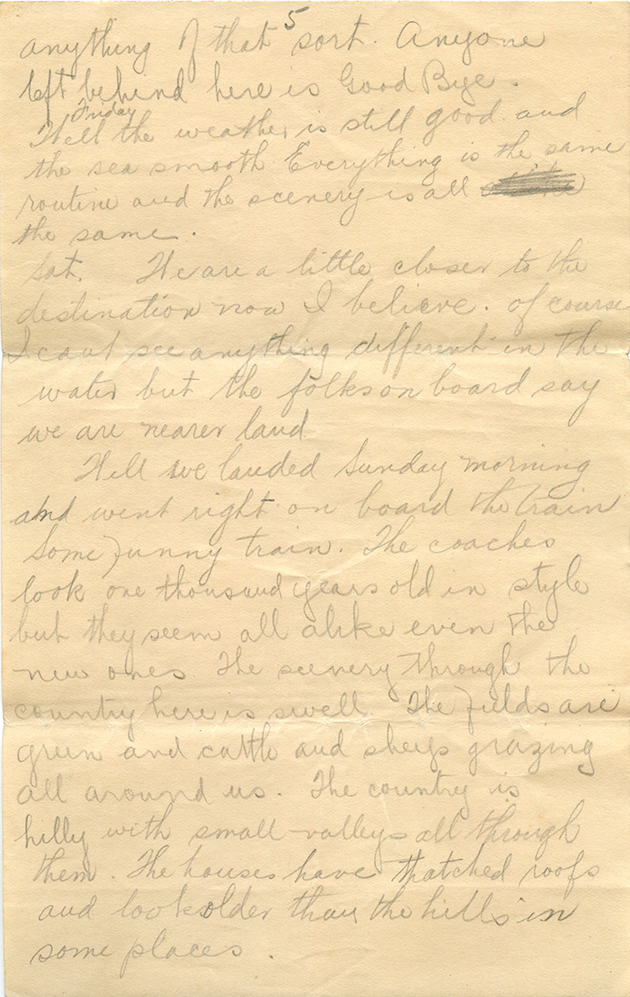 5
anything of that sort. Anyone
left behind here is Good Bye.
Friday
Well the weather is still good and
the sea smooth Everything is the same
routine and the scenery is all
the same.
Sat. We are a little closer to the
destination now I believe. of course
I cant see anything different in the
water but the folks on board say
we are nearer land
Well we landed Sunday morning
and went right on board the train
Some funny train. The coaches
look one thousand years old in style
but they seem all alike even the
new ones The scenery through the
country here is swell. The fields are
green and cattle and sheep grazing
all around us. The country is
hilly with small valleys all through
them. The houses have thatched roofs
and look older than the hills in
some places.